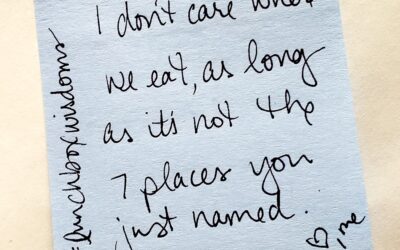 I don't care where
we eat, as long
as it's not the
7 places you
just named.
♡, me
#lunchboxwisdoms